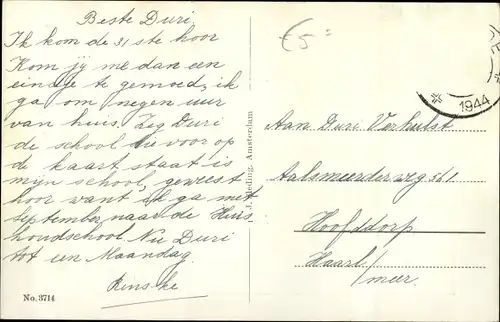 Beste Duri.
Ik kom de 31 ste hoor
Kom jy me dan een
eindje te gemoed, ik
ga om negen uur
van huis. Zeg Duri
de school die voor op
de kaart staat is
mijn school, geweest
hoor want ik ga met
September naar de Huis
houdschool. Nu Duri
tot een Maandag.
Rinske
No. 3714
Amsterdam
€5
1944
Aan Duri Verhulst
Aalsmeerderweg 561
Hoofddorp
Haarl/
meer.